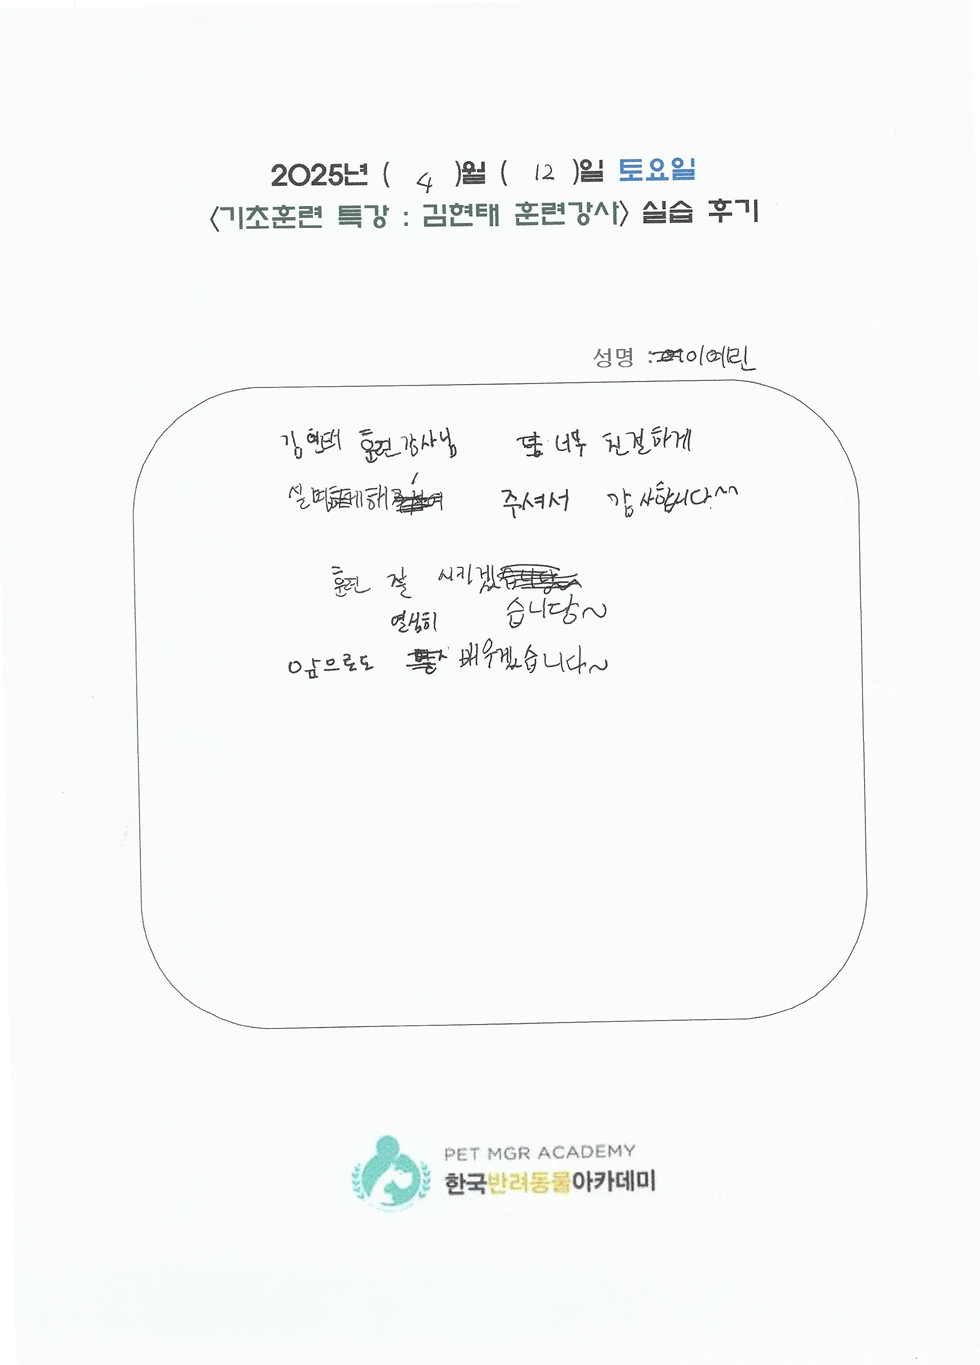 2025년 ( 4 )월 ( 12 )일 토요일
<기초훈련 특강 : 김현태 훈련강사> 실습 후기
성명 : 이예린
김현태 훈련강사님 너무 친절하게
설명해 주셔서 감사합니다^^
훈련 잘 시키겠
습니당~
열심히
앞으로도 배우겠습니다~
PET MGR ACADEMY
한국반려동물아카데미